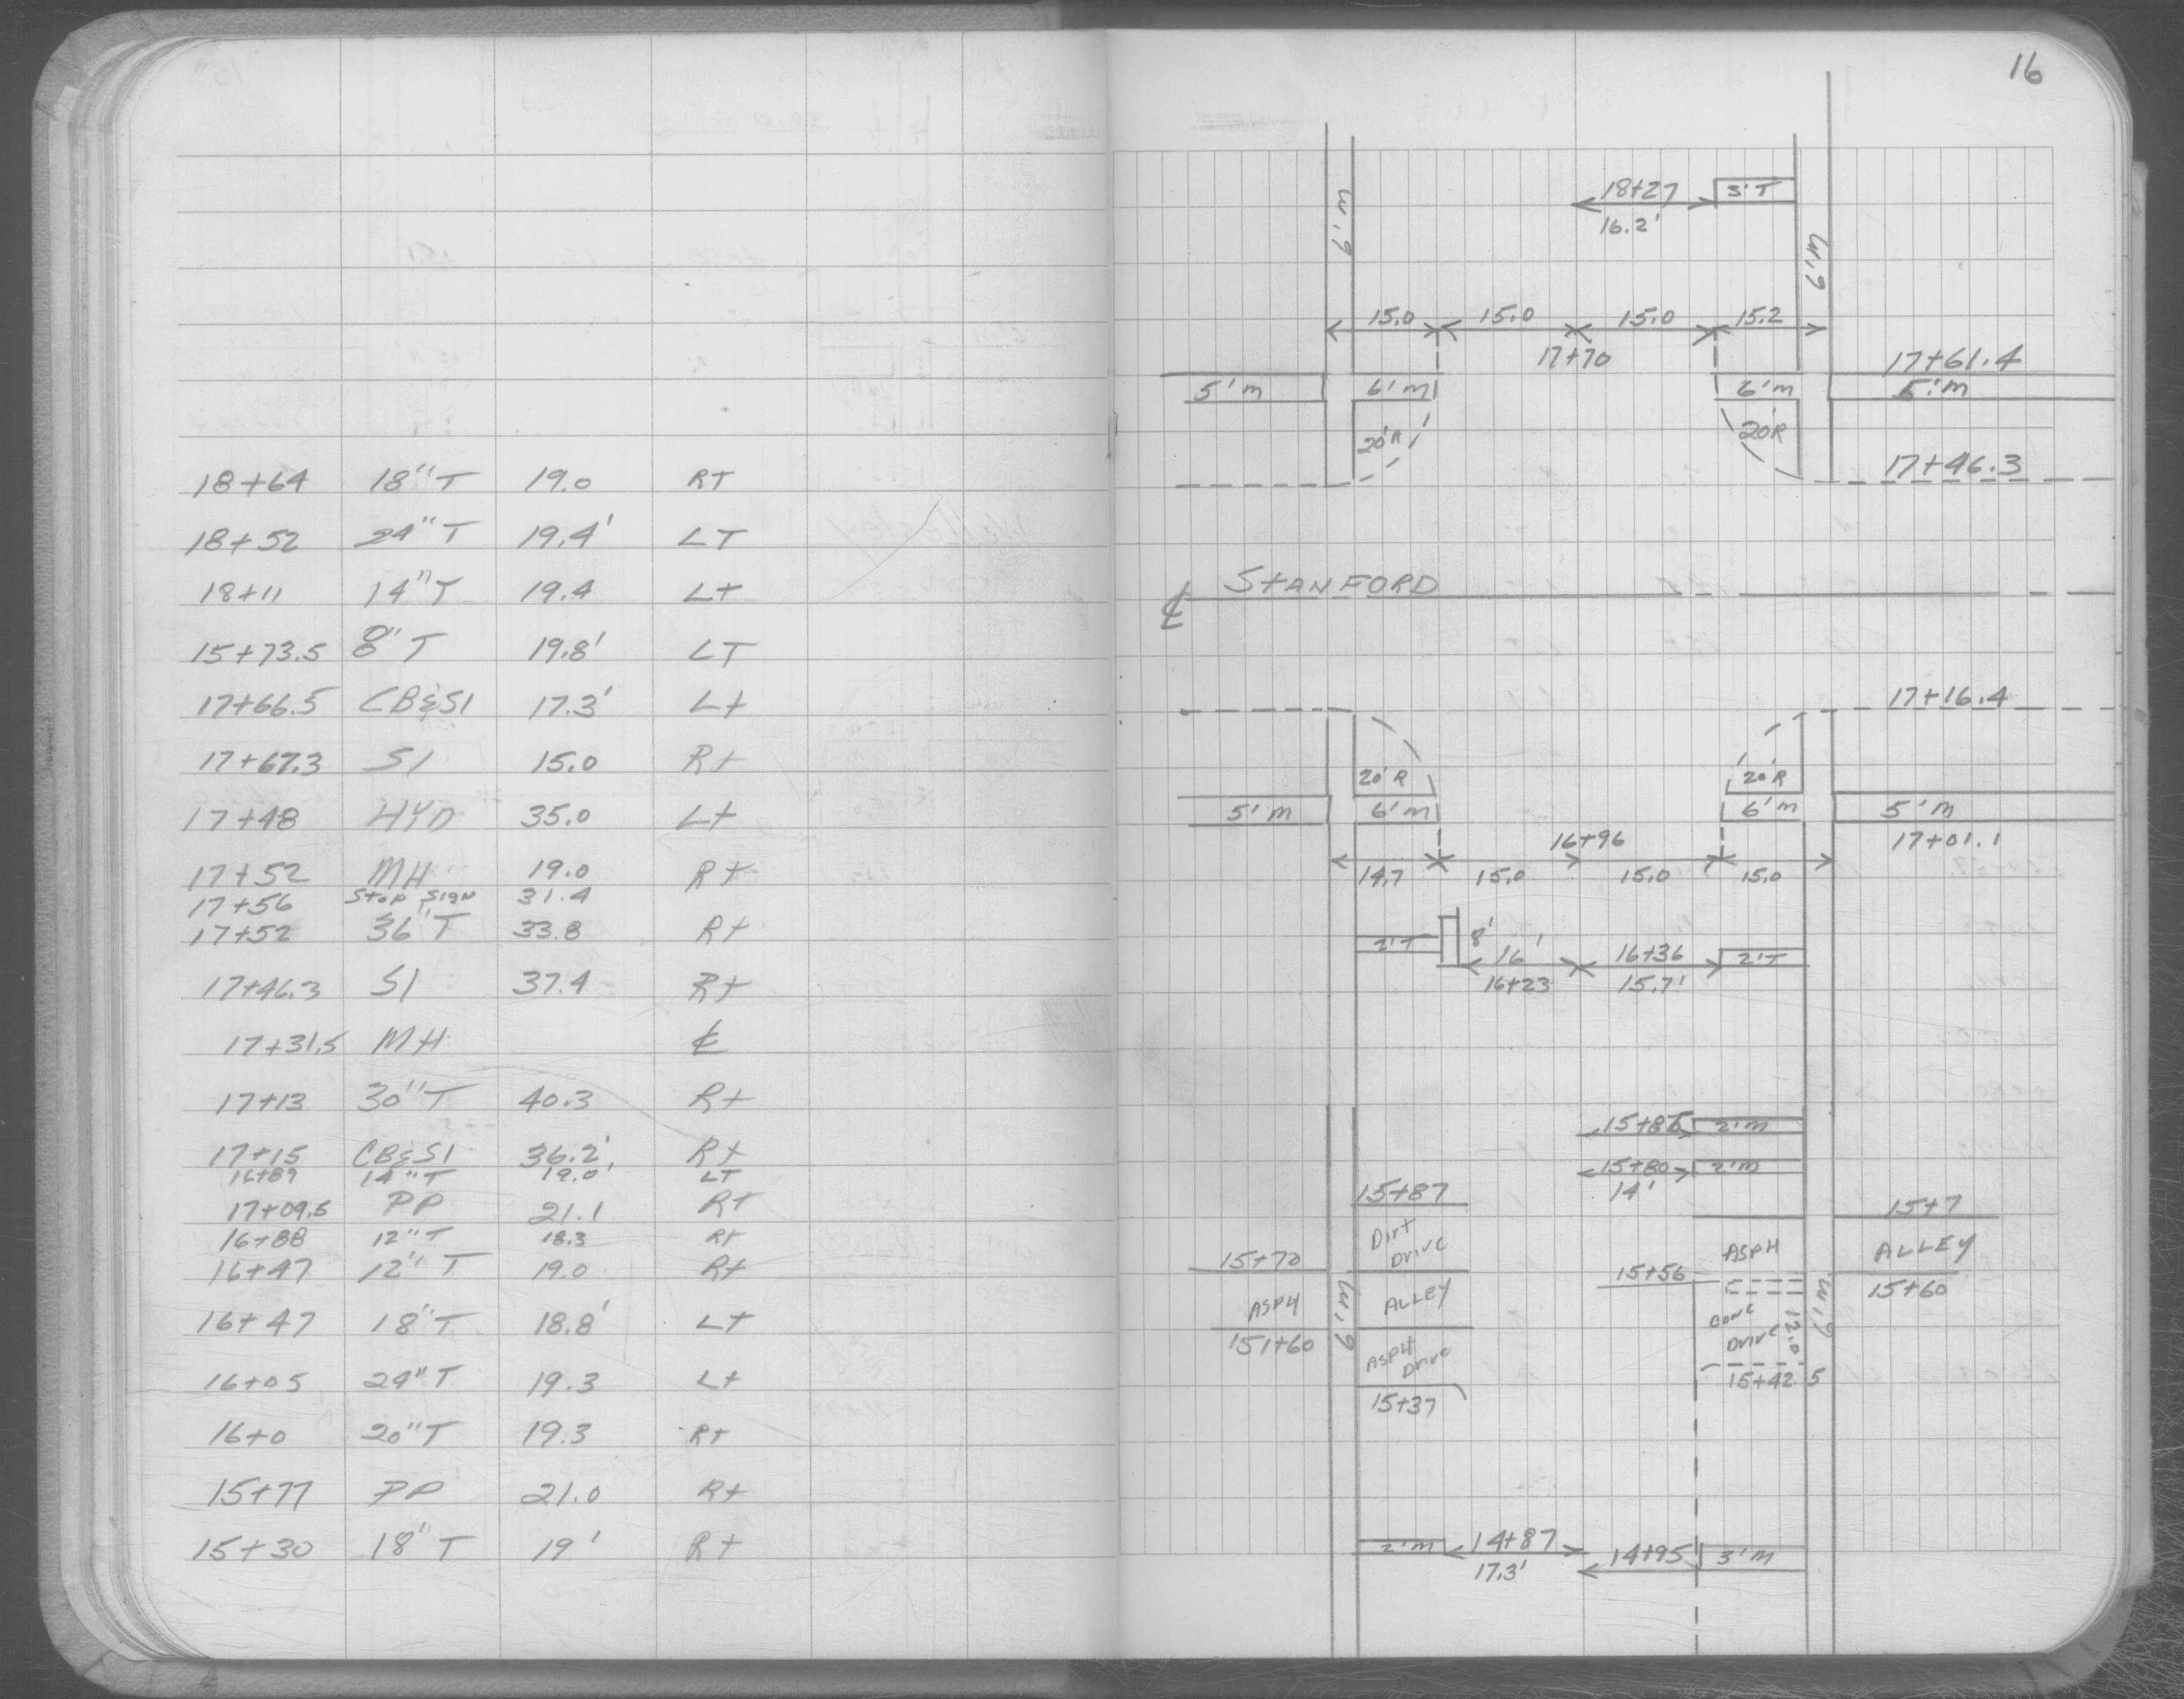 18+64 18"T 19.0 RT
18+52 24"T 19.4' LT
18+11 14"T 19.4 Lt
15+73.5 8"T 19.8' LT
17+66.5 CB&SI 17.3' Lt
17+67.3 SI 15.0 Rt
17+48 HYD 35.0 Lt
17+52 MH 19.0 Rt
17+56 Stop Sign 31.4
17+52 36"T 33.8 Rt
17+46.3 SI 37.4 Rt
17+31.5 MH ℄
17+13 30"T 40.3 Rt
17+15 CB&SI 36.2' Rt
16+89 14"T 19.0' LT
17+09.5 PP 21.1 Rt
16+88 12"T 18.3 Rt
16+47 12"T 19.0 Rt
16+47 18"T 18.8' Lt
16+05 24"T 19.3 Lt
16+0 20"T 19.3 Rt
15+77 PP 21.0 Rt
15+30 18"T 19' Rt
16
18+27 3'T
16.2'
6'W 6'W
15.0 15.0 15.0 15.2
17+70 17+61.4
5'M 6'M 6'M 5'M
20'R 20'R
17+46.3
℄ STANFORD
17+16.4
20'R 20'R
5'M 6'M 6'M 5'M
16+96 17+01.1
14.7 15.0 15.0 15.0
2'T 8' 16' 16+36 2'T
16+23 15.7'
2'M
15+80 2'M
14'
15+87 15+7
Dirt
Drive
ASPH ALLEY
15+70 15+56 15+60
ASPH 6'W ALLEY Conc
Drive 12.0 6'W
15+60 ASPH
Drive
15+42.5
15+37
2'M 14+87 14+95 3'M
17.3'